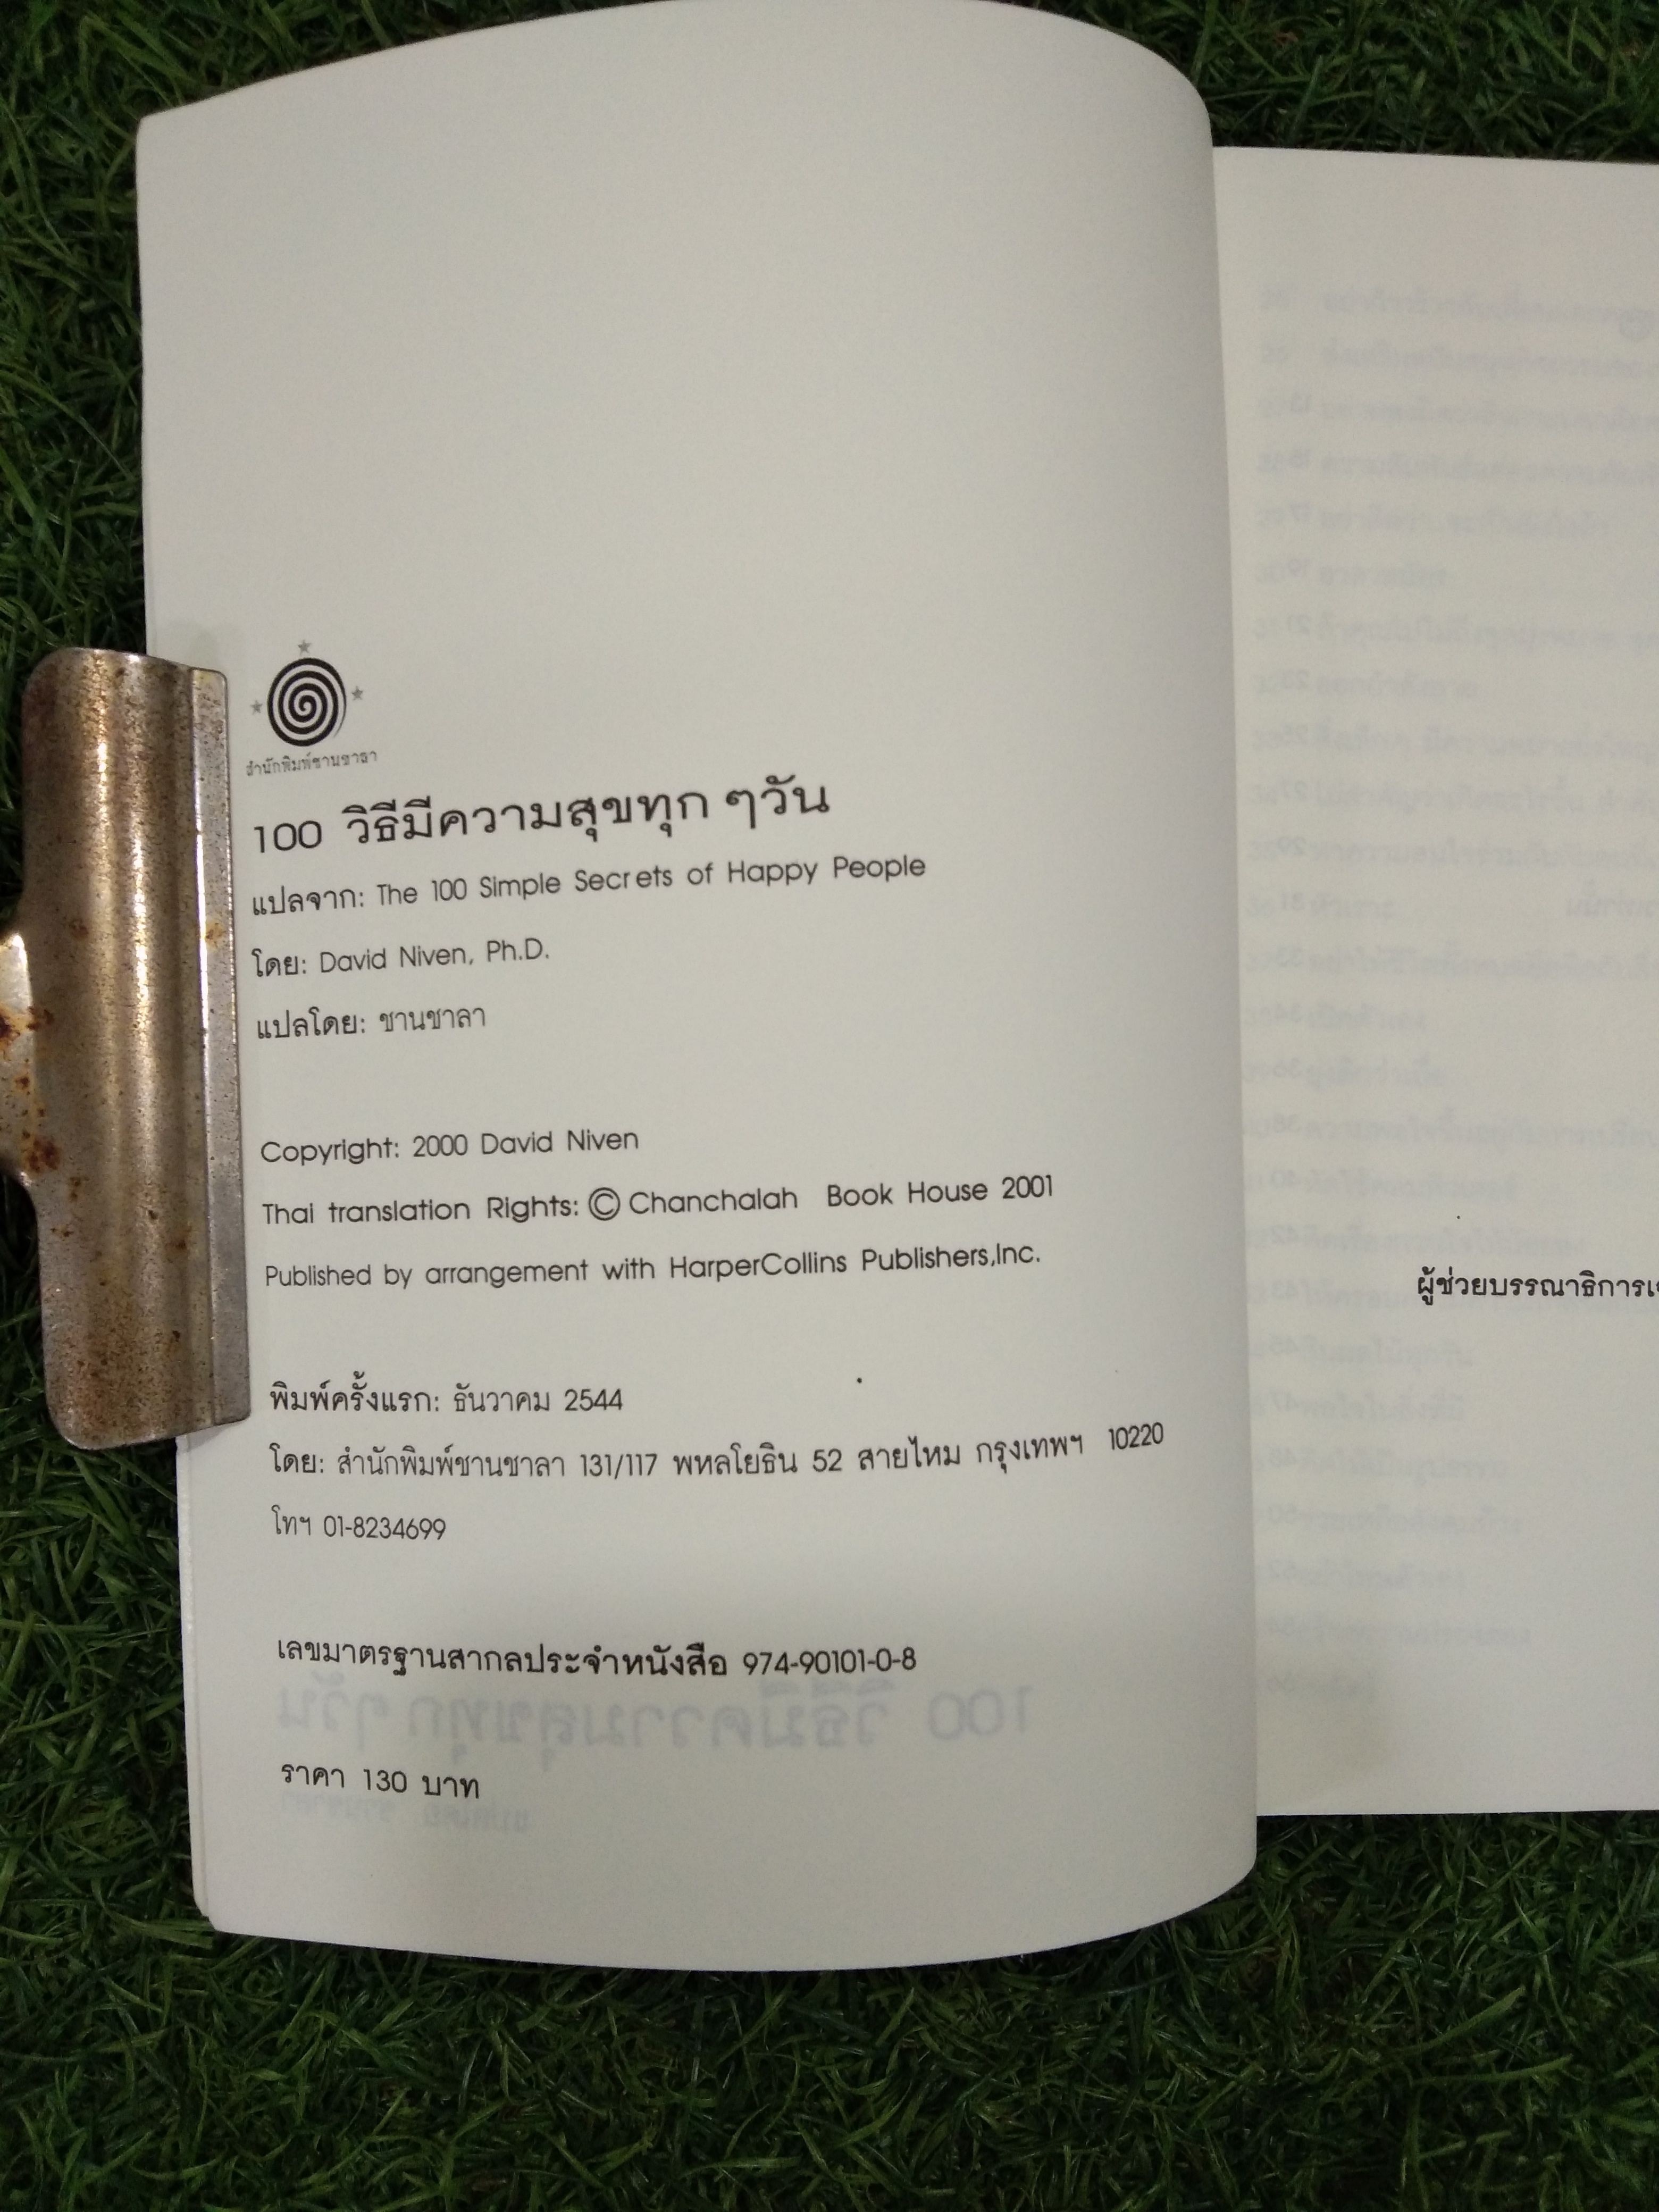 สำนักพิมพ์ชานชาลา
100 วิธีมีความสุขทุก ๆวัน
แปลจาก: The 100 Simple Secrets of Happy People
โดย: David Niven, Ph.D.
แปลโดย: ชานชาลา
Copyright: 2000 David Niven
Thai translation Rights: © Chanchalah Book House 2001
Published by arrangement with HarperCollins Publishers,Inc.
พิมพ์ครั้งแรก: ธันวาคม 2544
โดย: สำนักพิมพ์ชานชาลา 131/117 พหลโยธิน 52 สายไหม กรุงเทพฯ 10220
โทฯ 01-8234699
เลขมาตรฐานสากลประจำหนังสือ 974-90101-0-8
ราคา 130 บาท
ผู้ช่วยบรรณาธิการ